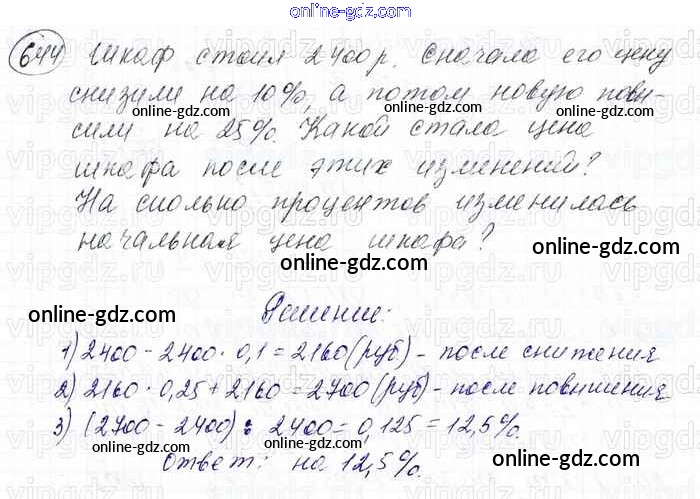 online-gdz.com
644 Шкаф стоил 2400 р. Сначала его цену
снизили на 10%, а потом новую повы-
сили на 25%. Какой стала цена
шкафа после этих изменений?
На сколько процентов изменилась
начальная цена шкафа?
Решение:
1) 2400 - 2400 · 0,1 = 2160 (руб) - после снижения
2) 2160 · 0,25 + 2160 = 2700 (руб) - после повышения
3) (2700 - 2400) : 2400 = 0,125 = 12,5%.
Ответ: на 12,5%.
online-gdz.com
online-gdz.com
online-gdz.com
online-gdz.com
online-gdz.com
online-gdz.com
online-gdz.com
online-gdz.com
online-gdz.com
online-gdz.com